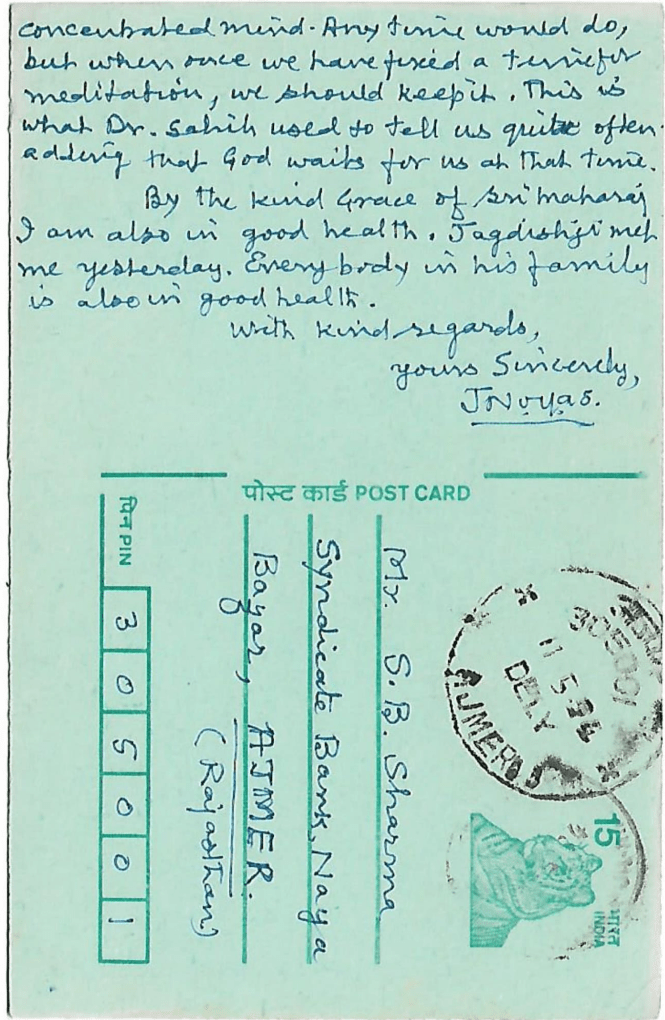 concentrated mind. Any time would do,
but when once we have fixed a time for
meditation, we should keep it. This is
what Dr. Sahib used to tell us quite often
adding that God waits for us at that time.
By the kind Grace of Sri Maharaj
I am also in good health. Jagdishji met
me yesterday. Everybody in his family
is also in good health.
With kind regards,
yours Sincerely,
पोस्ट कार्ड POST CARD
Mr. S.B. Sharma
Syndicate Bank, Naya
Bazar, AJMER.
(Rajasthan)
पिन PIN
305001
305001
11 5
DELY
AJMER
15
भारत
INDIA